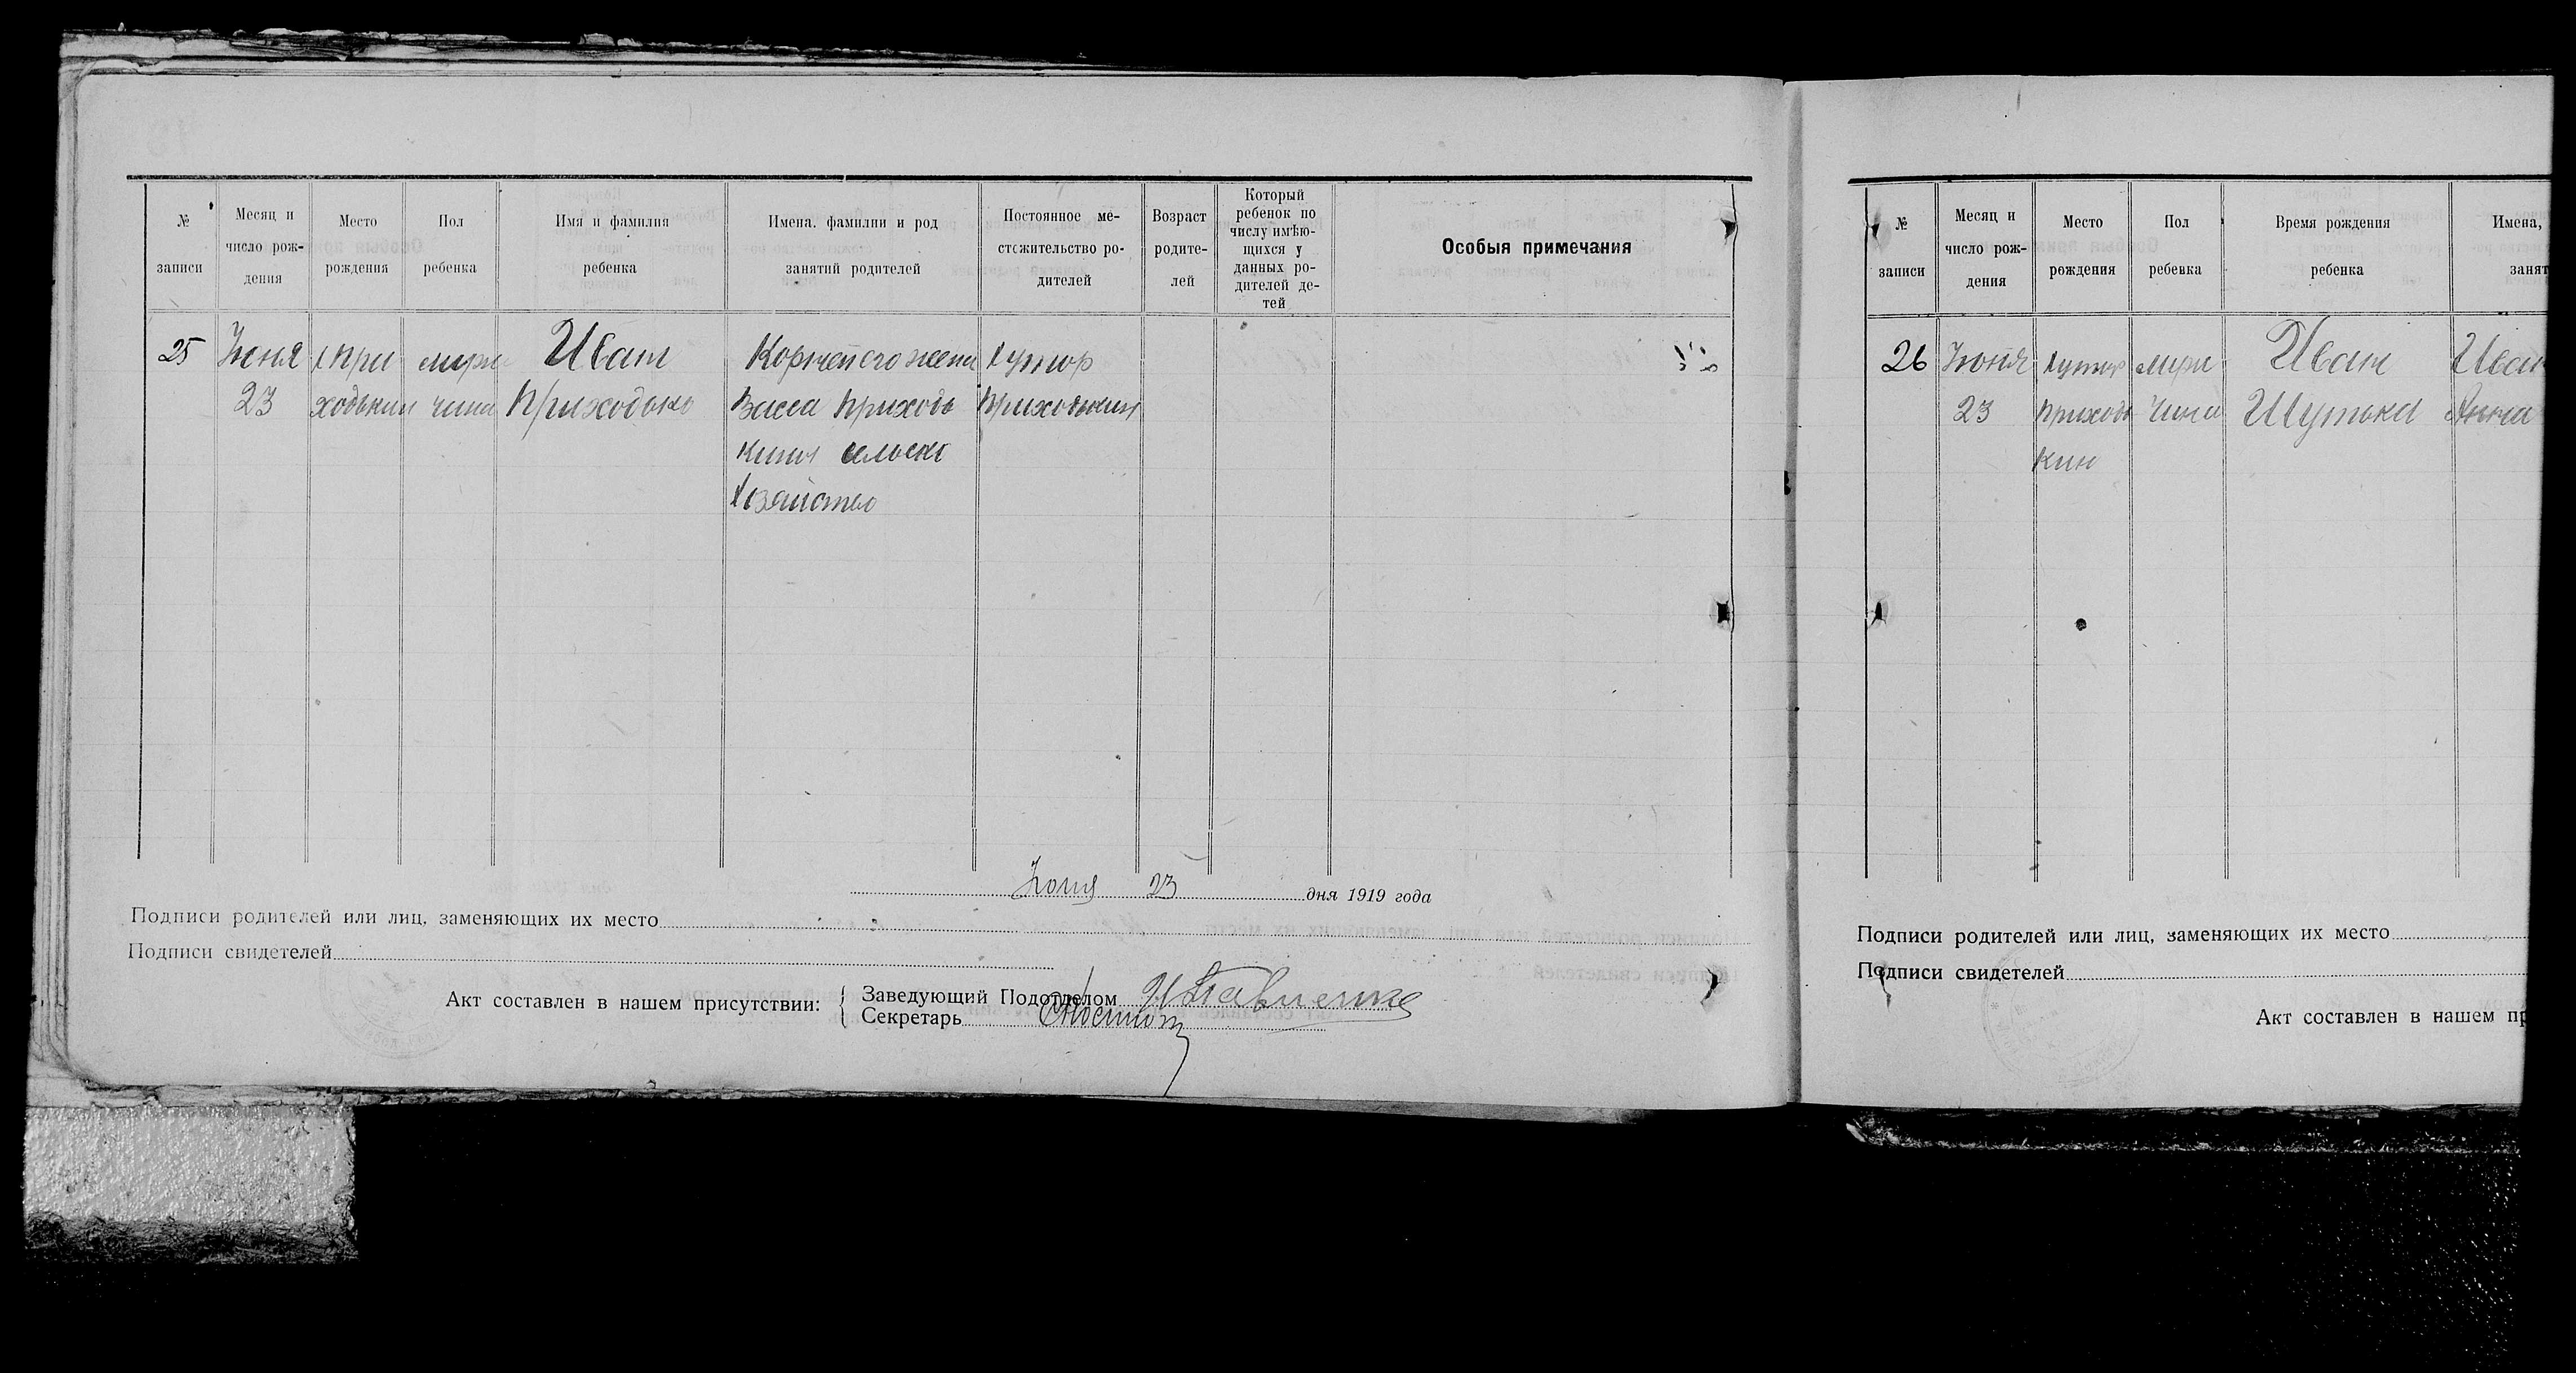 № записи
Месяц и число рож-дения
Место рождения
Пол ребенка
Имя и фамилия ребенка
Имена, фамилии и род занятий родителей
Постоянное ме-стожительство ро-дителей
Возраст родите-лей
Который ребенок по числу имѣю-щихся у данных ро-дителей де-тей
Особыя примечания
25 Июня х при мужс Иван Корней его жена Хутор
23 ходькин чина Приходько Васса Приходь Приходькин
кины сельско
хозяйство
Июня 23 дня 1919 года
Подписи родителей или лиц, заменяющих их место
Подписи свидетелей
Акт составлен в нашем присутствии:
Заведующий Подотделом
Секретарь
№ записи
Месяц и число рож-дения
Место рождения
Пол ребенка
Время рождения ребенка
Имена,
занят
26 Июня Хутор мужс Иван Иван
23 Приходь чина Шутька Анна
кин
Подписи родителей или лиц, заменяющих их место
Подписи свидетелей
Акт составлен в нашем пр